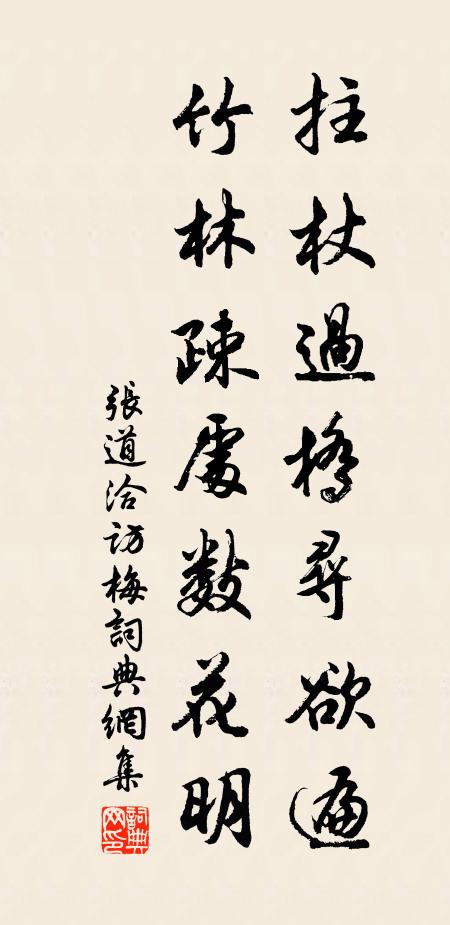 拄杖過橋尋欲遍
竹林疎處數花明
張道洽訪梅詞典網集
詞典網印